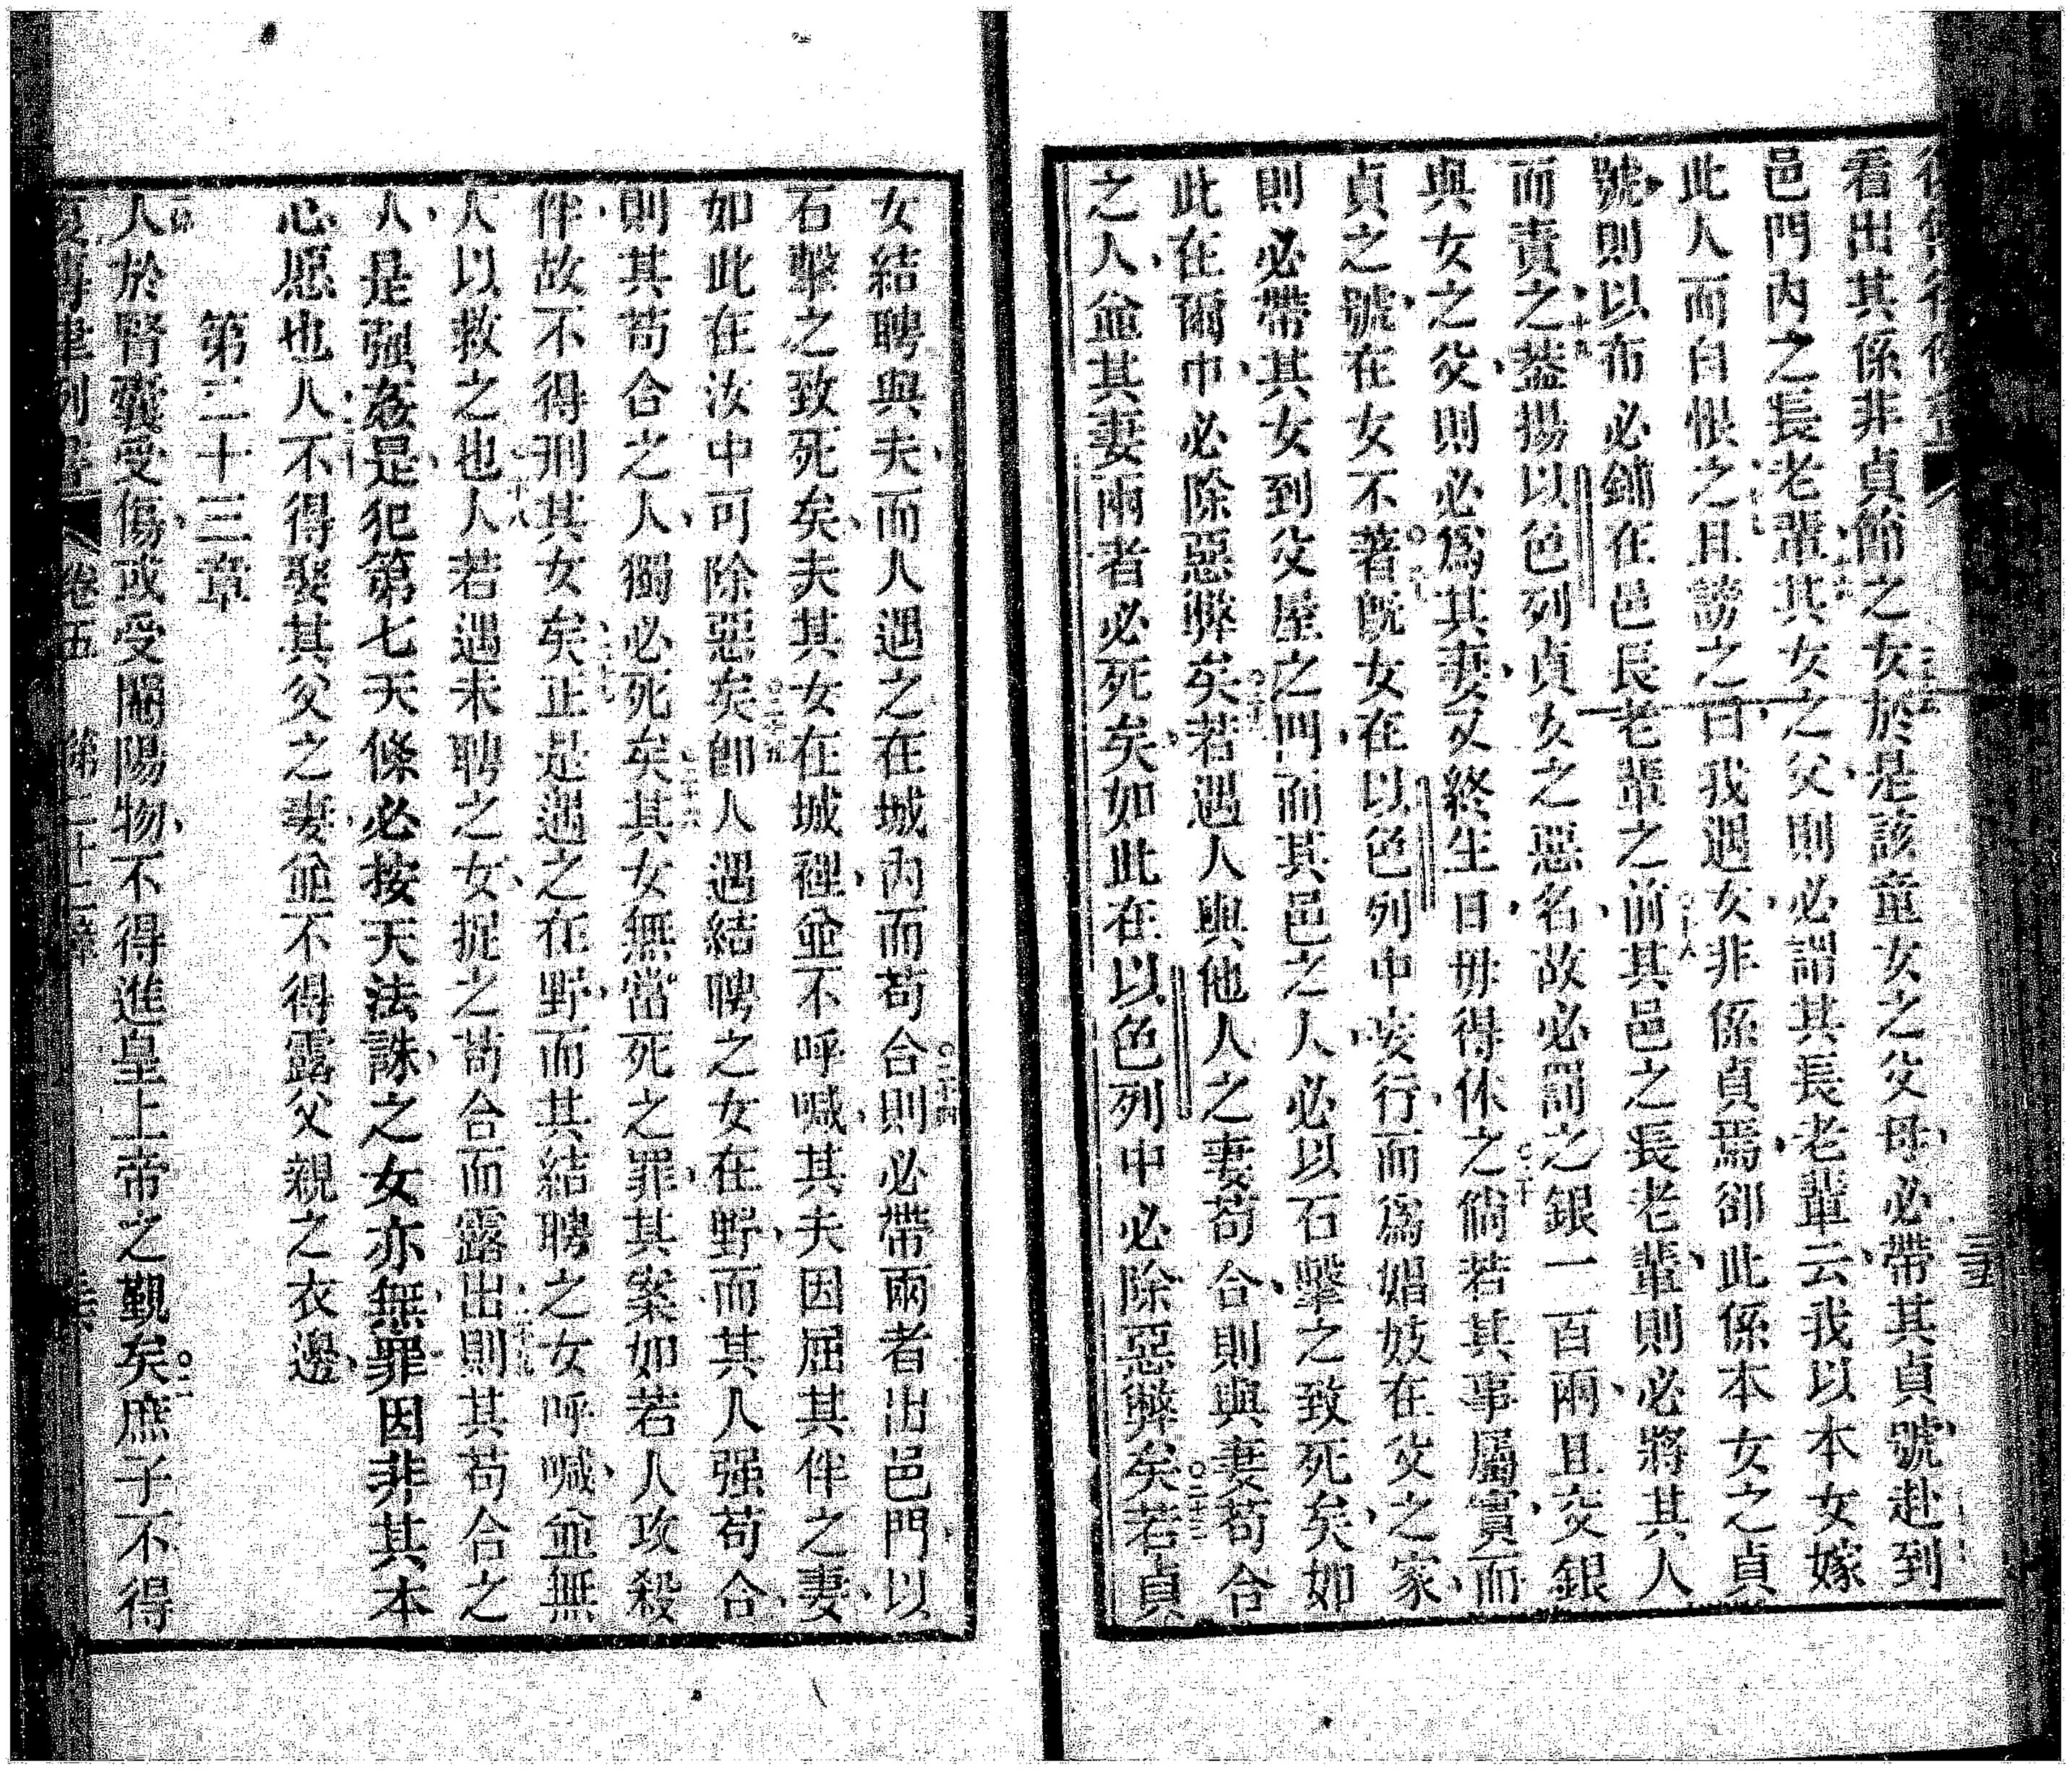 看出其係非貞節之女於是該童女之父母必帶其貞號赴到
邑門內之長老輩其女之父則必謂其長老輩云我以本女嫁
此人而自恨之且謗之曰我遇女非係貞焉卻此係本女之貞
號則以布必鋪在邑長老輩之前其邑之長老輩則必將其人
而責之蓋揚以色列貞女之惡名故必罰之銀一百兩且交銀
與女之父則必爲其妻又終生日毋得休之倘若其事屬實而
貞之號在女不著旣女在以色列中妄行而爲娼妓在父之家
則必帶其女到父屋之門而其邑之人必以石擊之致死矣如
此在爾中必除惡弊矣若遇人與他人之妻苟合則與妻苟合
之人並其妻兩者必死矣如此在以色列中必除惡弊矣若貞
女結聘與夫而人遇之在城內而苟合則必帶兩者出邑門以
石擊之致死矣夫其女在城裡並不呼喊其夫因屈其伴之妻
如此在汝中可除惡矣卽人遇結聘之女在野而其人强苟合
則其苟合之人獨必死矣其女無當死之罪其案如若人攻殺
伴故不得刑其女矣正是遇之在野而其結聘之女呼喊並無
人以救之也人若遇未聘之女捉之苟合而露出則其苟合之
人是强姦是犯第七天條必按天法誅之女亦無罪因非其本
心愿也人不得娶其父之妻並不得露父親之衣邊
第二十三章
人於腎囊受傷或受閹陽物不得進皇上帝之覲矣庶子不得
卷五